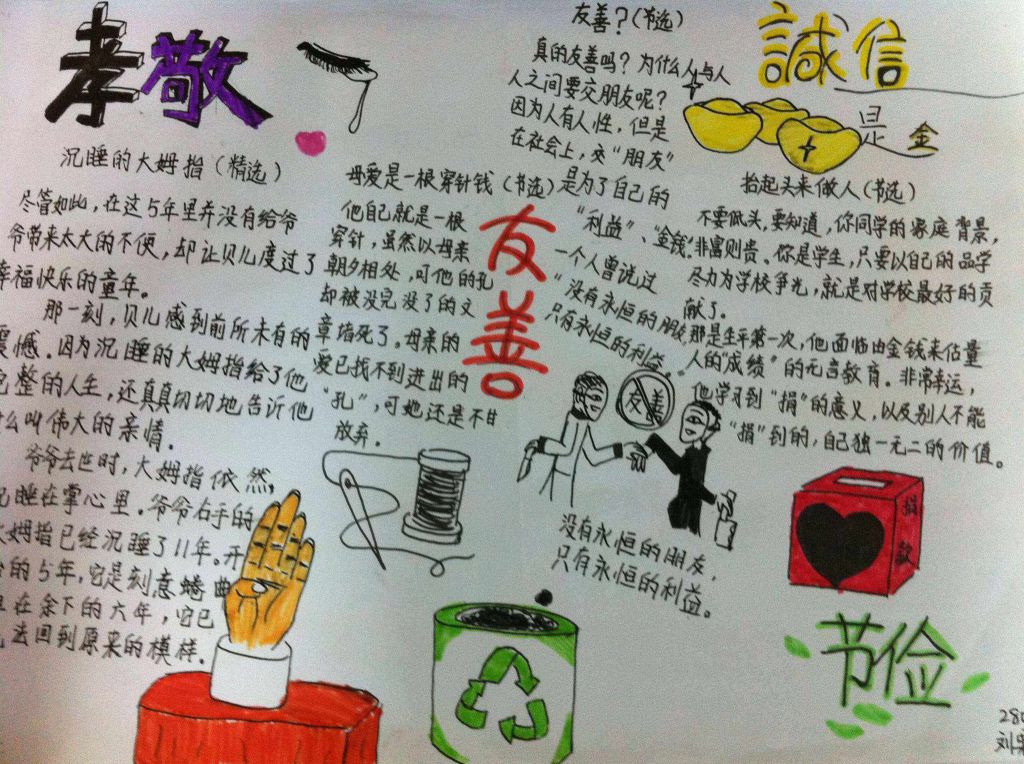 孝敬
沉睡的大姆指（精选）
尽管如此，在这5年里并没有给爷
爷带来太大的不便，却让贝儿度过了
幸福快乐的童年。
那一刻，贝儿感到前所未有的
震憾。因为沉睡的大姆指给了他
完整的人生，还真真切切地告诉他
什么叫伟大的亲情。
爷爷去世时，大姆指依然，
沉睡在掌心里。爷爷右手的
大姆指已经沉睡了11年。开
始的5年，它是刻意蜷曲
在余下的六年，它已
去回到原来的模样。
母爱是一根穿针钱（节选）
他自己就是一根
穿针，虽然以母亲
朝夕相处，可他的孔
却被没完没了的文
章堵死了。母亲的
爱已找不到进出的
“孔”，可她还是不甘
放弃。
友善
友善？（节选）
真的友善吗？为什么人与人
人之间要交朋友呢？
因为人有人性，但是
在社会上，交“朋友”
是为了自己的
“利益”、“金钱”。
一个人曾说过
“没有永恒的朋友
只有永恒的利益。”
友善
没有永恒的朋友，
只有永恒的利益。
誠信
是金
抬起头来做人（节选）
不要低头，要知道，你同学的家庭背景，
非富则贵、你是学生，只要以自己的品学
尽力为学校争光，就是对学校最好的贡
献了。
那是生平第一次，他面临由金钱来估量
人的“成绩”的无言教育。非常幸运，
他学习到“捐”的意义，以及别人不能
“捐”到的，自己独一无二的价值。
捐款
节俭
280
刘